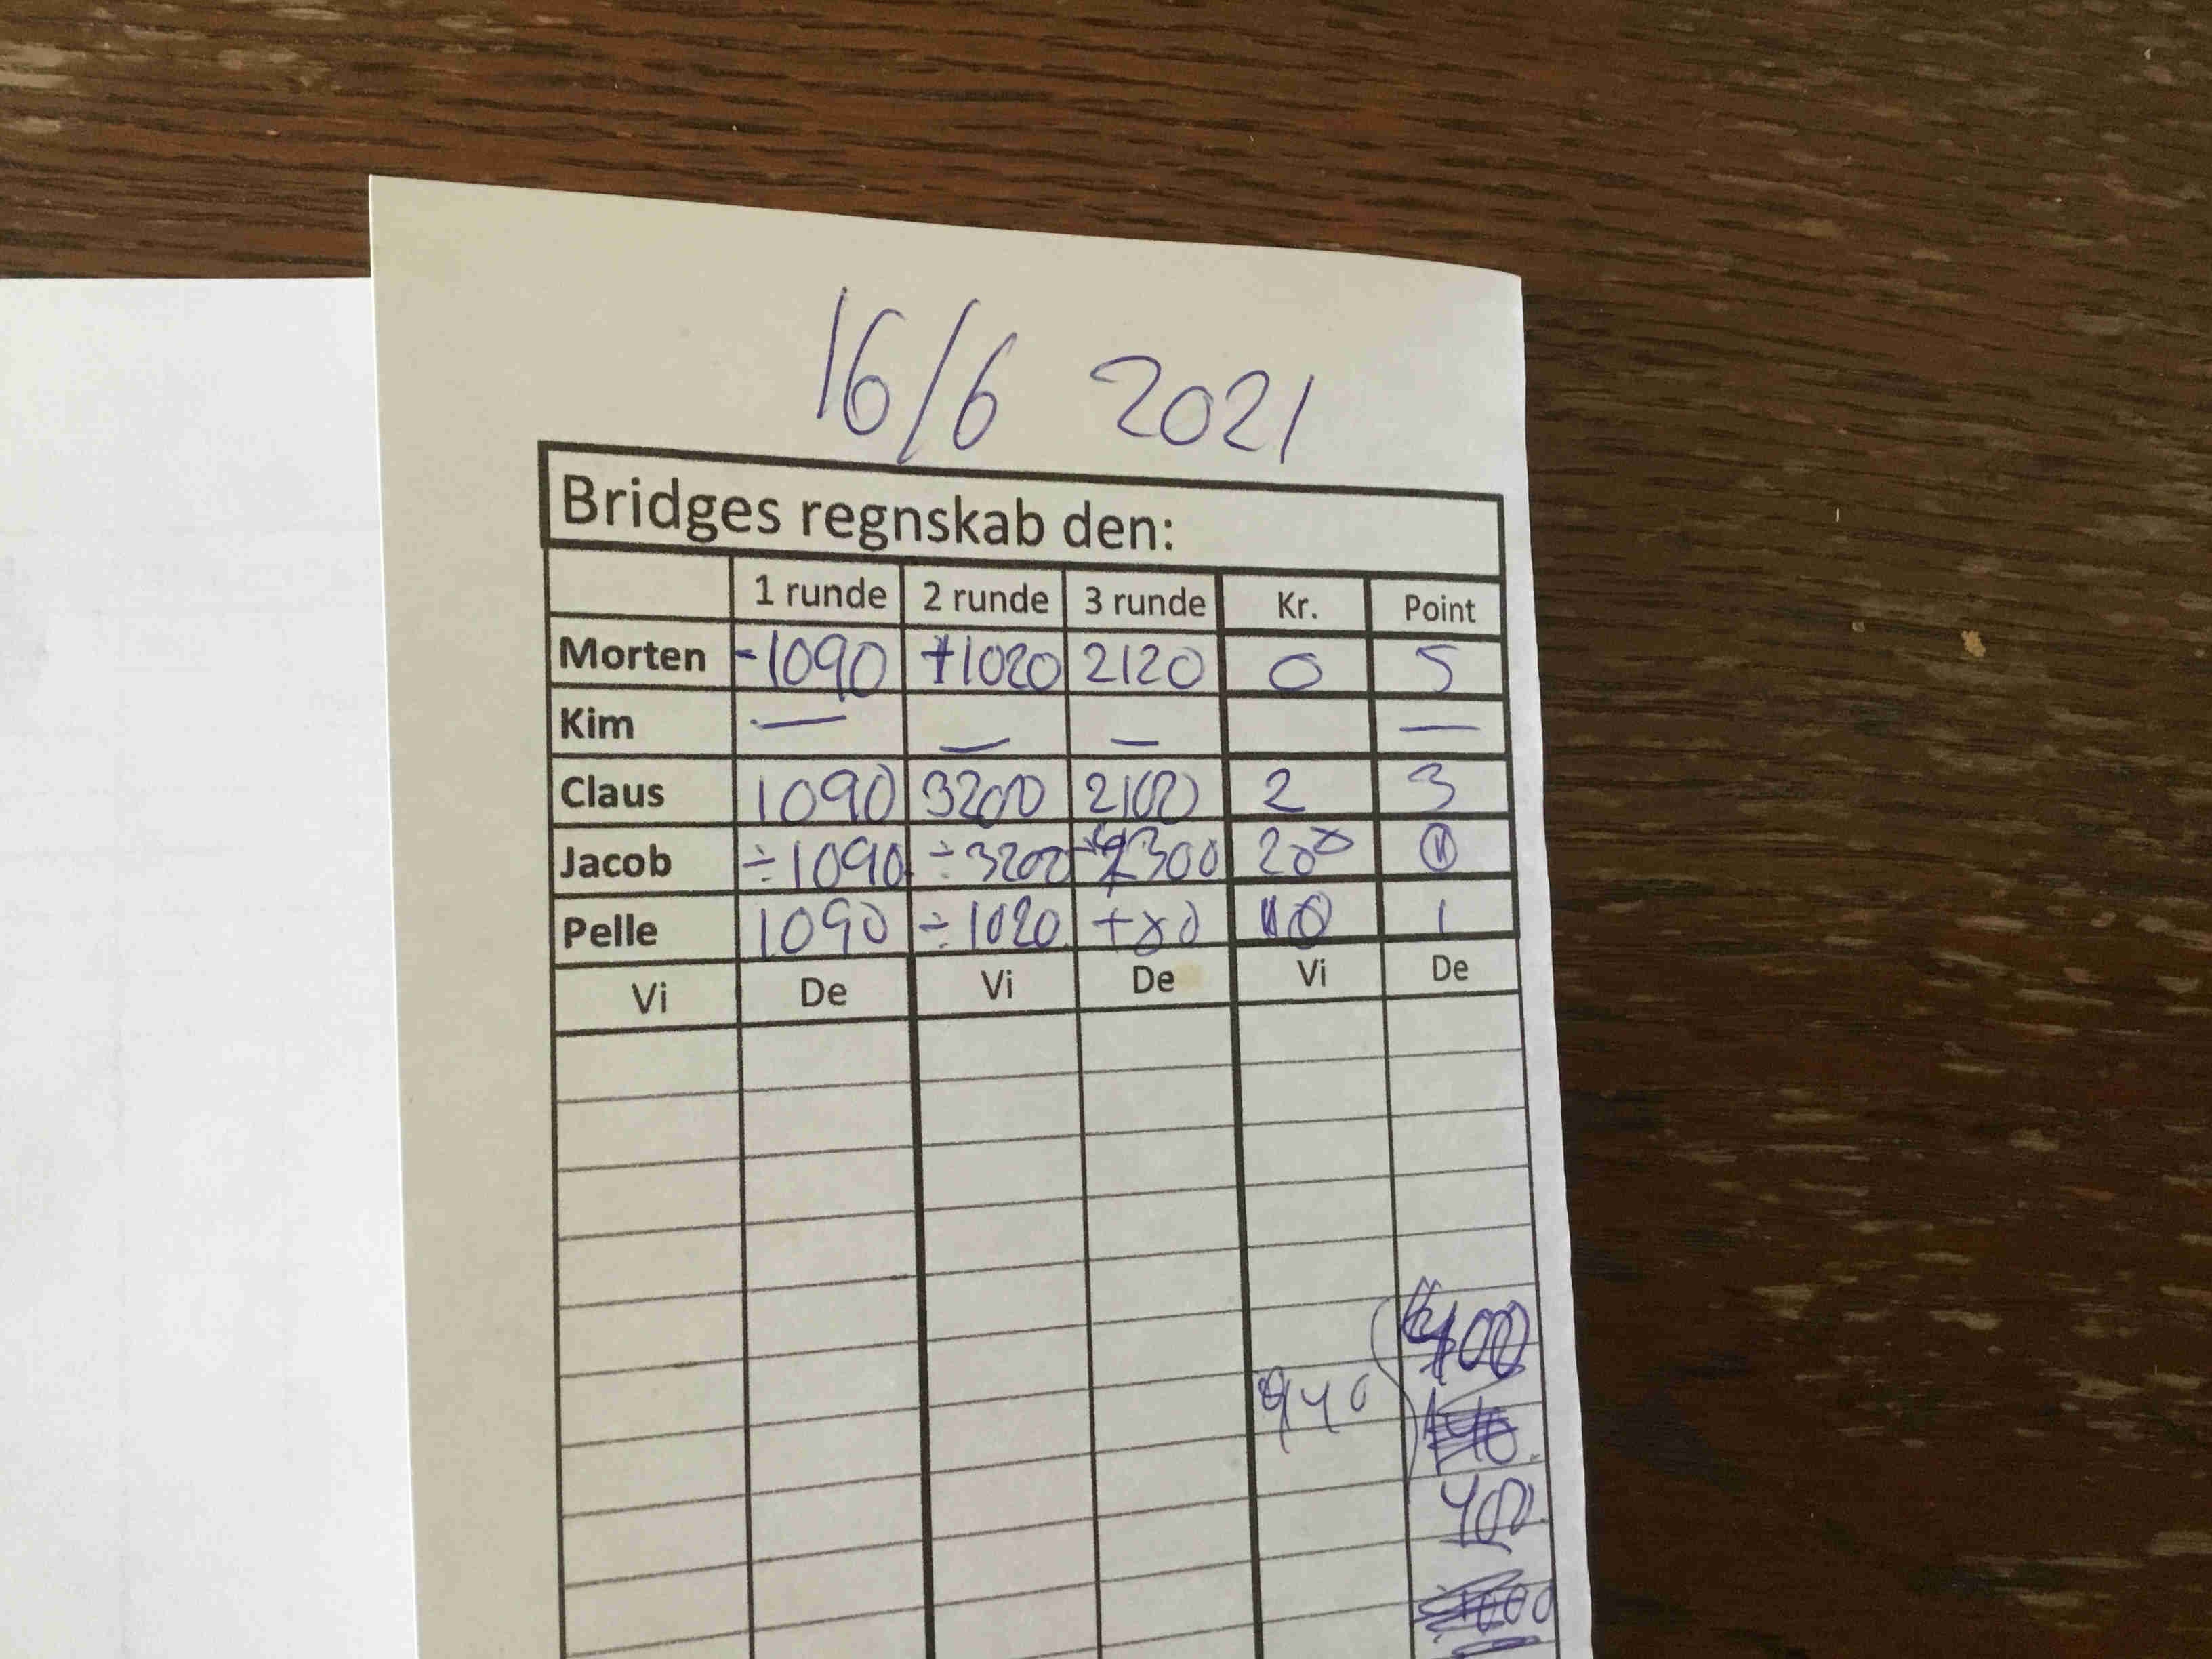 16/6 2021
Bridges regnskab den:
1 runde 2 runde 3 runde Kr. Point
Morten -1090 +1020 2120 0 5
Kim — — — —
Claus 1090 3200 2100 2 3
Jacob ÷1090 ÷3200 200
Pelle 1090 ÷1020 +80 1
Vi De Vi De Vi De
400
940
400